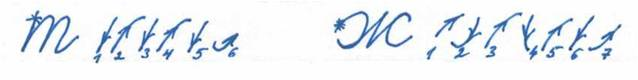 Т 1 2 3 4 5 6 Ж 1 2 3 4 5 6 7